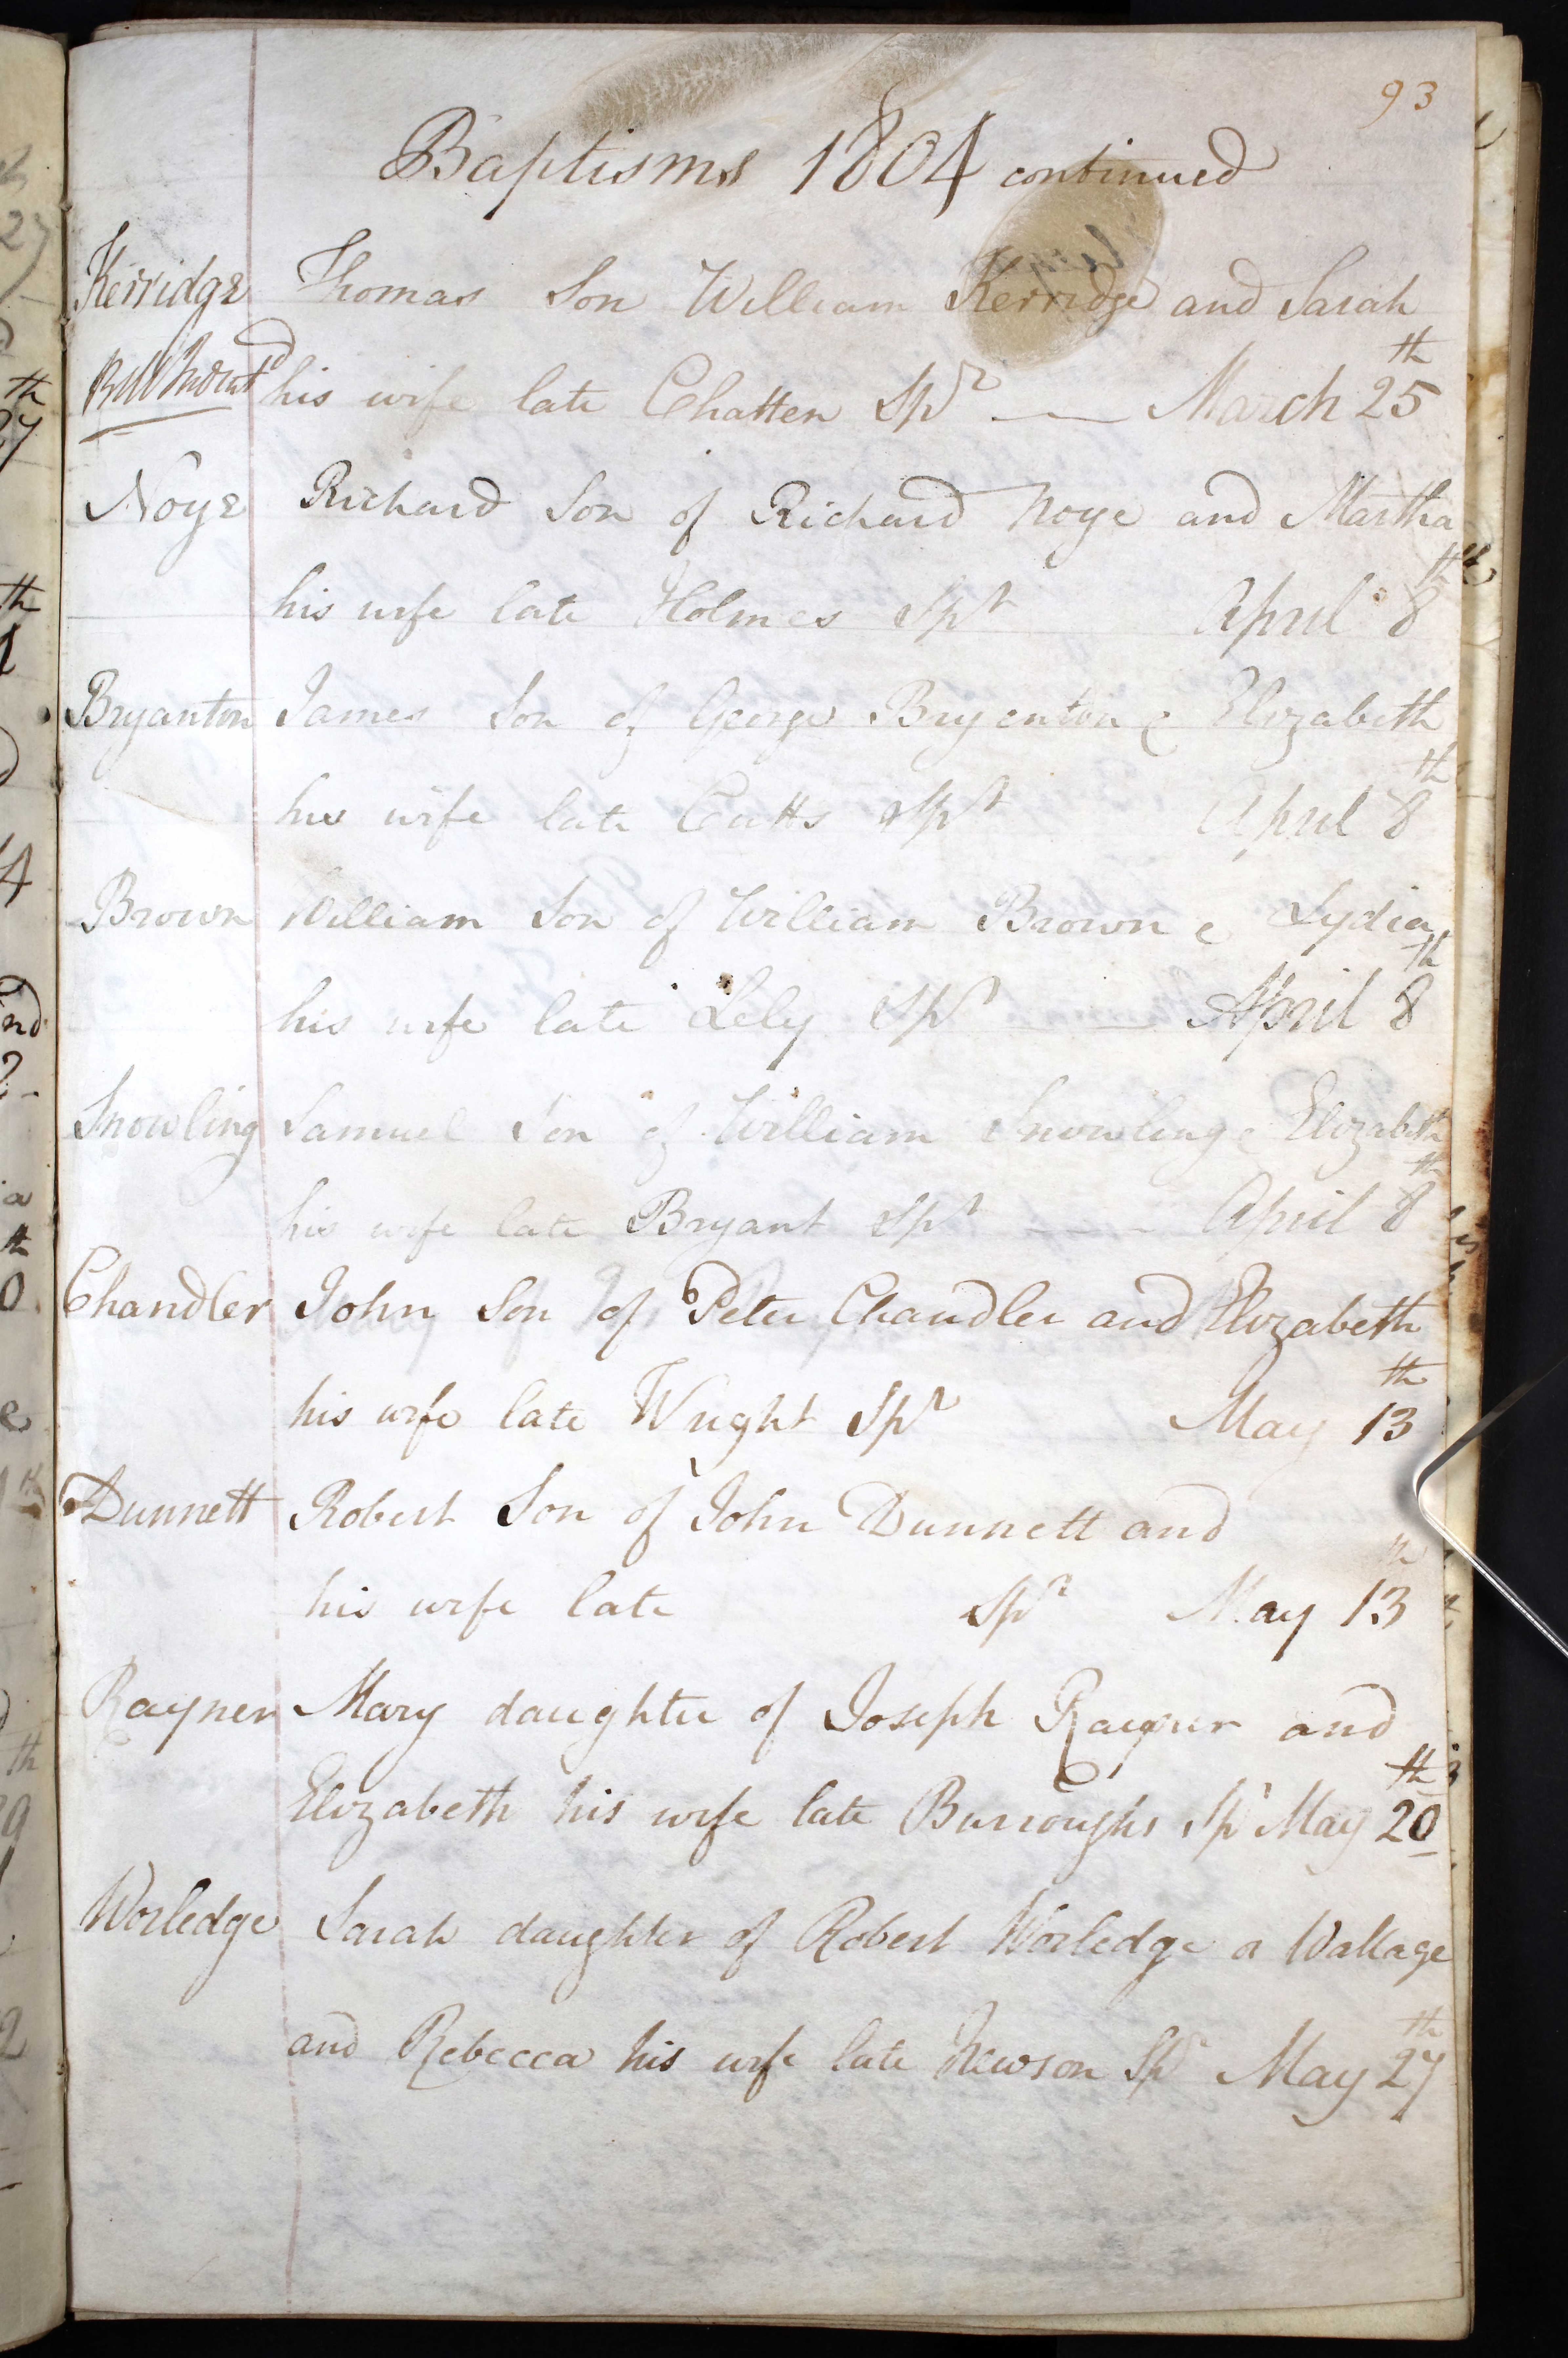 93
Baptisms 1804 continued
Kerridge Thomas Son William Kerridge and Sarah
his wife late Chatten Spr March 25th
Noye Richard Son of Richard Noye and Martha
his wife late Holmes Spr April 8th
Bryanton James Son of George Bryenton & Elizabeth
his wife late Cutts Spr April 8th
Brown William Son of William Brown & Lydia
his wife late Lely Spr April 8th
Snowling Samuel Son of William Snowling & Elizabeth
his wife late Bryant Spr April 8th
Chandler John Son of Peter Chandler and Elizabeth
his wife late Wright Spr May 13th
Dunnett Robert Son of John Dunnett and
his wife late Spr May 13th
Rayner Mary daughter of Joseph Rayner and
Elizabeth his wife late Burroughs Spr May 20th
Worledge Sarah daughter of Robert Worledge a Wallage
and Rebecca his wife late Newson Spr May 27th